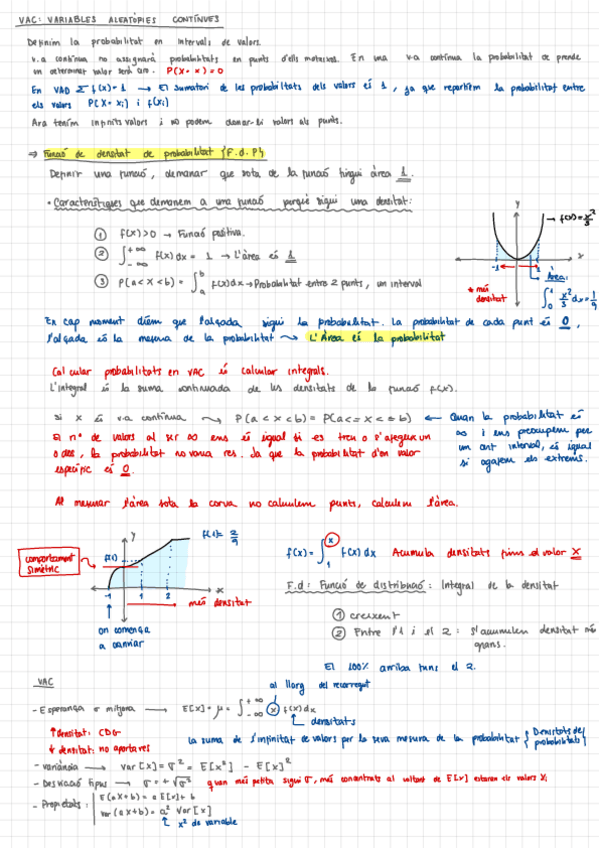 VAC: VARIABLES ALEATÒRIES CONTÍNUES
Definim la probabilitat en intervals de valors.
v.a contínua no assignarà probabilitats en punts d'ells mateixos. En una v.a contínua la probabilitat de prendre
un determinat valor serà zero. P(X=x)=0
En VAD Σ f(x)=1 → El sumatori de les probabilitats dels valors és 1, ja que repartim la probabilitat entre
els valors P(X=xi) i f(xi)
Ara tenim infinits valors i no podem donar-li valors als punts.
⇒ Funció de densitat de probabilitat {F.d.P}
Definir una funció, demanar que sota de la funció hi hagi àrea 1.
• Característiques que demanem a una funció perquè sigui una densitat:
① f(x)>0 → Funció positiva.
② ∫_{-∞}^{+∞} f(x)dx = 1 → L'àrea és 1
③ P(a<X<b) = ∫_a^b f(x)dx → Probabilitat entre 2 punts, un interval
y
→ f(x)=x²/3
x
-1
2
Àrea:
* més densitat
∫_0^1 x²/3 dx = 1/9
En cap moment diem que l'alçada sigui la probabilitat. La probabilitat de cada punt és 0,
l'alçada és la mesura de la probabilitat → L'Àrea és la probabilitat
Calcular probabilitats en VAC és calcular integrals.
L'integral és la suma continuada de les densitats de la funció f(x).
Si x és v.a contínua → P(a<x<b) = P(a<=x<=b) ← Quan la probabilitat és
∞ i ens preocupem per
un interval, és igual
si agafem els extrems.
El nº de valors al ser ∞ ens és igual si es treu o s'afegeix un
o dos, la probabilitat no varia res. Ja que la probabilitat d'un valor
específic és 0.
Al mesurar l'àrea sota la corva no calculem punts, calculem l'àrea.
comportament
simètric
y
f(1)
f(1)= 2/9
-1
1
2
x
més densitat
on comença
a canviar
f(x)= ∫_1^x f(x) dx Acumula densitats fins el valor x
F.d: Funció de distribució: Integral de la densitat
① creixent
② Entre l'1 i el 2: s'acumulen densitat més
grans.
El 100% arriba fins el 2.
VAC
al llarg del recorregut
- Esperança o mitjana → E[x]=μ= ∫_{-∞}^{+∞} x f(x)dx
densitats
↑densitat: CDG
↓densitat: no aportares
la suma de l'infinitat de valors per la seva mesura de la probabilitat {Densitats de
probabilitats}
- variància → Var[x]=σ² = E[x²] - E[x]²
- Desviació tipus → σ=+√σ² quan més petita sigui σ, més concentrats al voltant de E[x] estaran els valors xi
- Propietats: E(aX+b)=a E[x]+b
Var(aX+b)=a² Var[x]
x² de variable